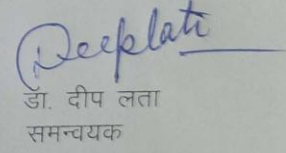 Deeplata
डा. दीप लता
समन्वयक